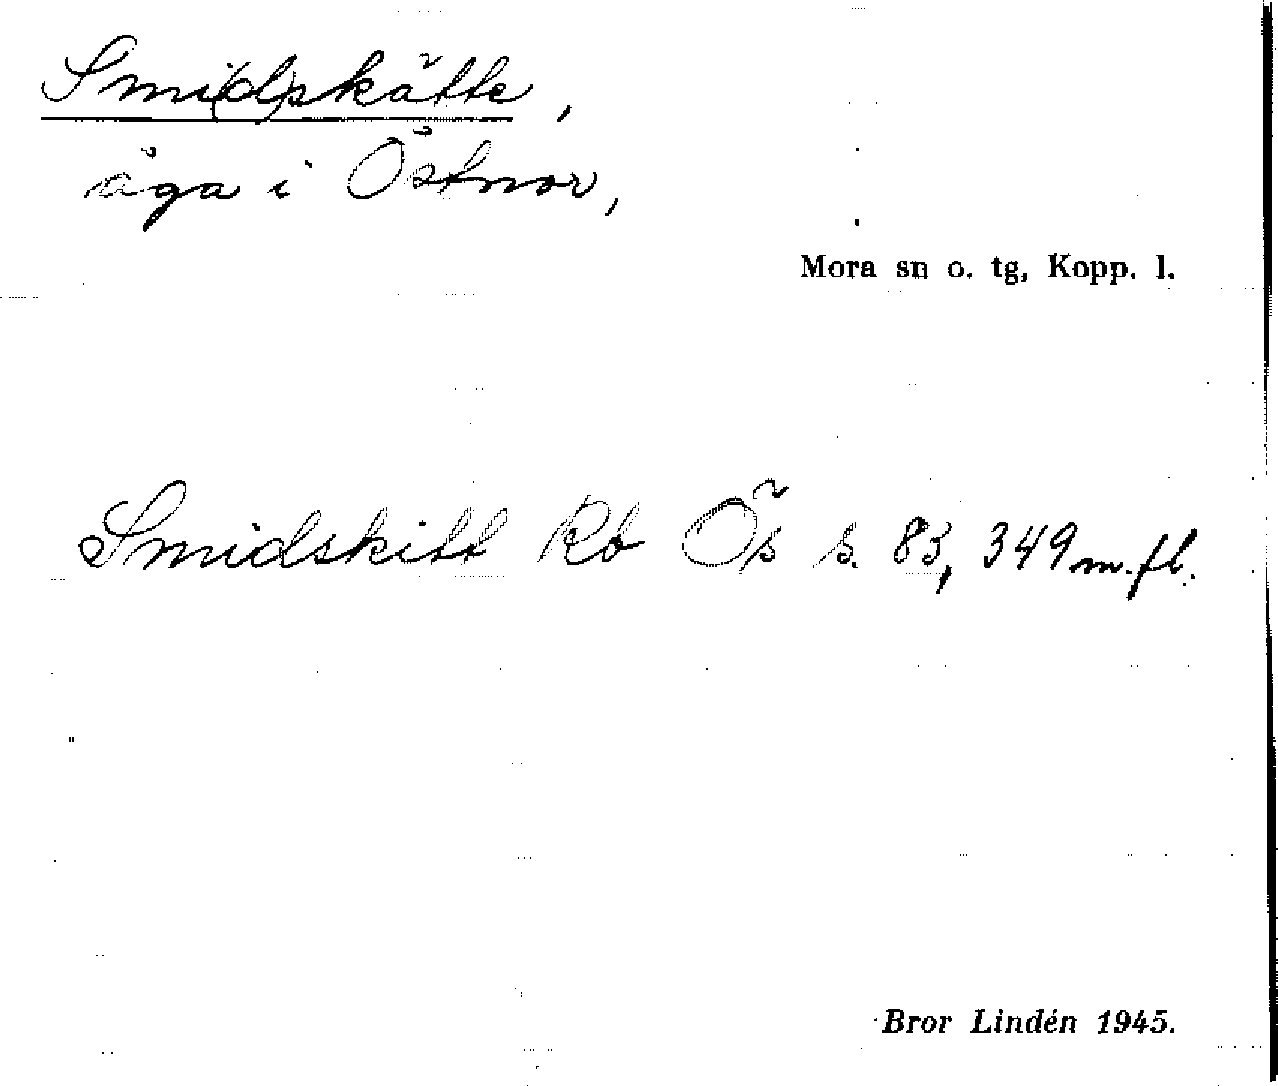 Smi(d)skätte,
äga i Östnor,
Mora sn o. tg, Kopp. l.
Smidskitt Rb Ös s. 83, 349 m. fl.
Bror Lindén 1945.